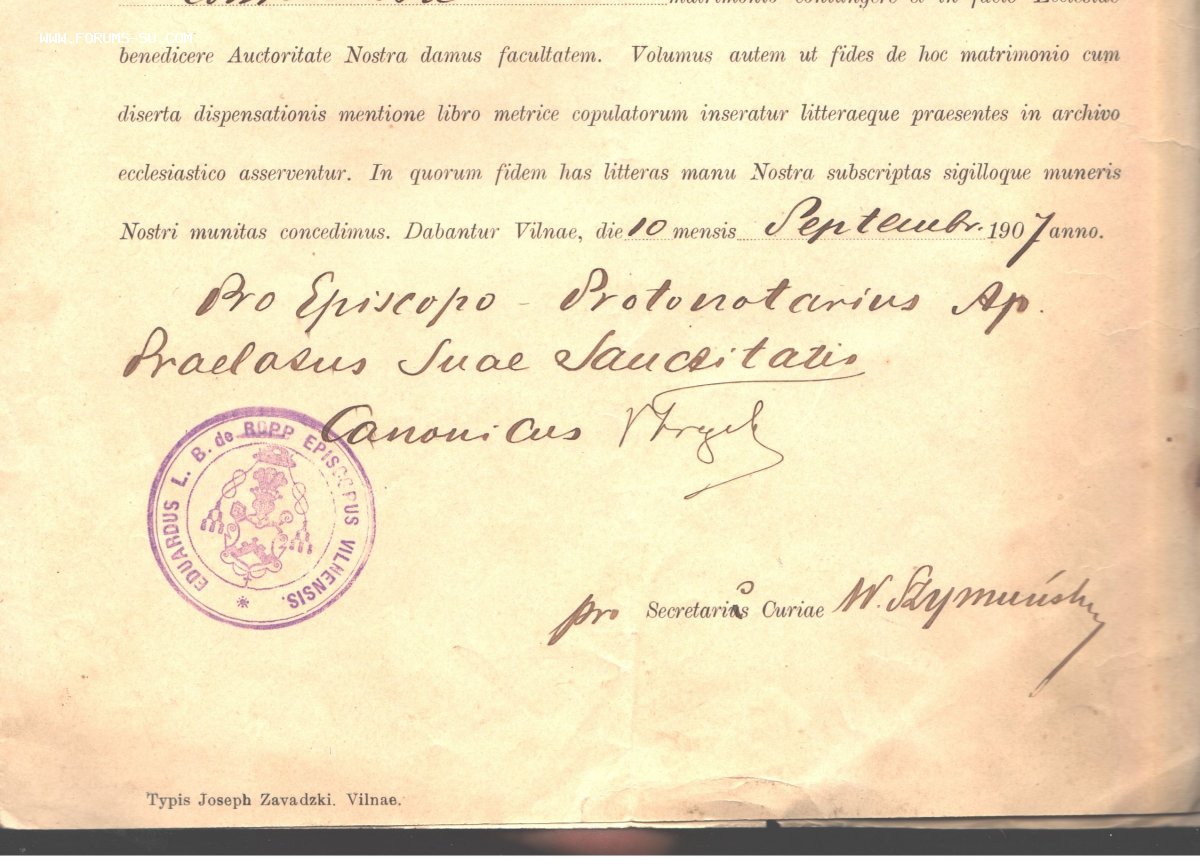 matrimonio contungere et in facie Ecclesiae
WWW.FORUMS-SU.COM
benedicere Auctoritate Nostra damus facultatem. Volumus autem ut fides de hoc matrimonio cum
diserta dispensationis mentione libro metrice copulatorum inseratur litteraeque praesentes in archivo
ecclesiastico asserventur. In quorum fidem has litteras manu Nostra subscriptas sigilloque muneris
Nostri munitas concedimus. Dabantur Vilnae, die 10 mensis Septembr. 1907 anno.
Pro Episcopo - Protonotarius Ap.
Praelatus Suae Sanctitatis
Canonicus
EDUARDUS L. B. de ROPP EPISCOPUS VILNENSIS.
pro Secretario Curiae W. Szymański
Typis Joseph Zavadzki. Vilnae.